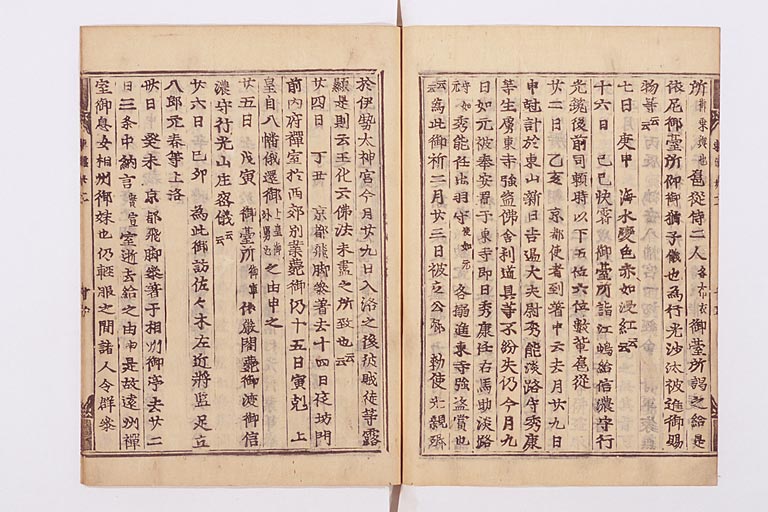 所扈從侍二人各布衣御臺所謁之給是
依尼御臺所御猶子儀也為行光沙汰被進御賜
物等云云
七日　庚申　海水變色赤如浸紅云云
十六日　己巳快霽　御臺所詣江嶋給信濃守行
光筑後前司頼時以下五位六位數輩扈從
廿二日　乙亥　京都使者到著申云去月廿九日
申尅計於東山新日吉邊大夫尉秀能淡路守秀康
等生虜東寺強盗佛舎利道具等不紛失仍今月九
日如元被奉安置于東寺即日秀康任右馬助淡路
守如元秀能任出羽守使如元　各搦進東寺強盗賞也
云云為此御祈二月廿三日被立公卿　勅使光親卿
於伊勢太神宮今月廿九日入洛之後彼賊徒等露
顯是則云王化云佛法未盡之所致也云云
廿四日　丁丑　京都飛脚參著去十四日夜坊門
前内府禪室於西郊別業薨御仍十五日寅尅　上
皇自八幡俄還御上皇御外舅也之由申之
廿五日　戊寅　御臺所御車依嚴閤薨御渡御信
濃守行光山庄密儀云云
廿六日己卯　為此御訪佐々木左近將監　足立
八郎元春等上洛
卅日　癸未　京都飛脚參著于相州御亭去廿二
日三条中納言實宣室逝去給之由申是故遠州禪
室御息女相州御妹也仍輕服之間諸人令群參